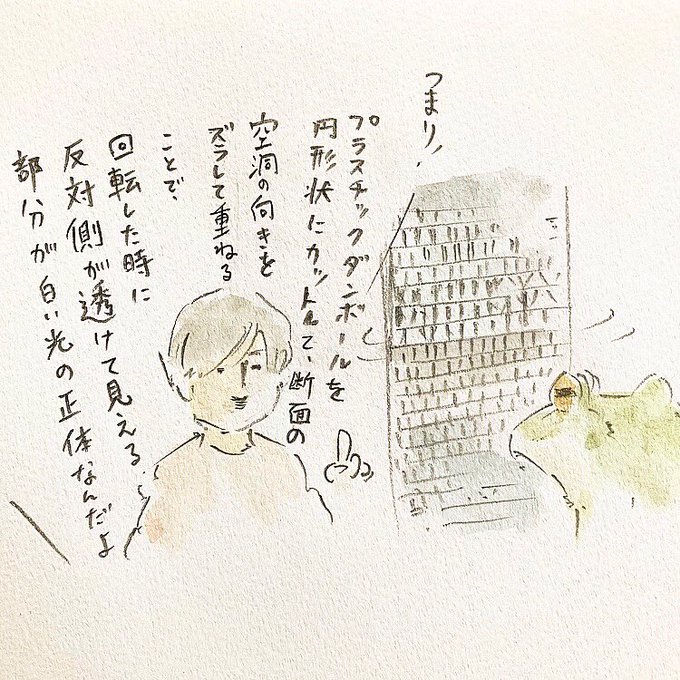 つまり！
プラスチックダンボールを
円形状にカットして、断面の
空洞の向きを
ズラして重ねる
ことで、
回転した時に
反対側が透けて見える
部分が白い光の正体なんだよ